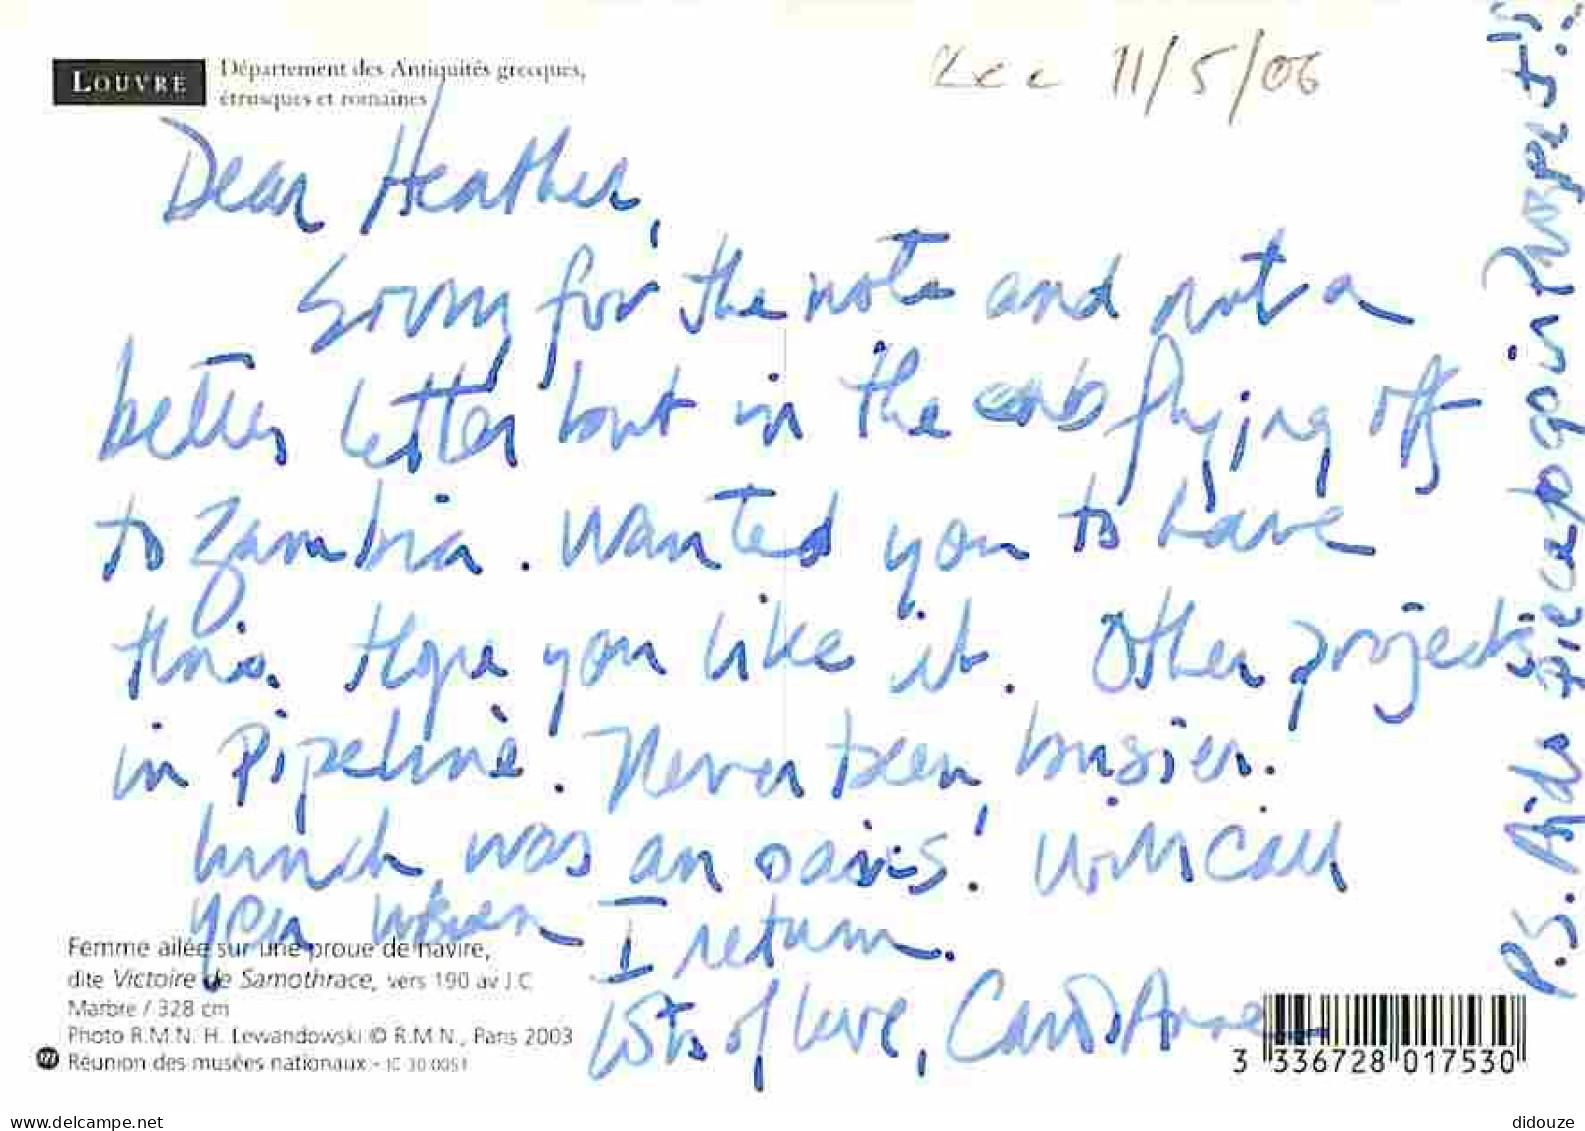 LOUVRE
Département des Antiquités grecques,
étrusques et romaines
Rec 11/5/06
Dear Heather,
Sorry for the note and not a
better letter but in the cab flying off
to Zambia. Wanted you to have
this. Hope you like it. Other projects
in Pipeline. Never been busier.
Lunch was an oasis! Will call
you when I return.
Lots of love, Carol Anne
P.S. Aids piece to go in Prospect!!
Femme ailée sur une proue de navire,
dite Victoire de Samothrace, vers 190 av J.C.
Marbre / 328 cm
Photo R.M.N. H. Lewandowski © R.M.N., Paris 2003
Réunion des musées nationaux - IC 30 0051
3 336728 017530
www.delcampe.net
didouze